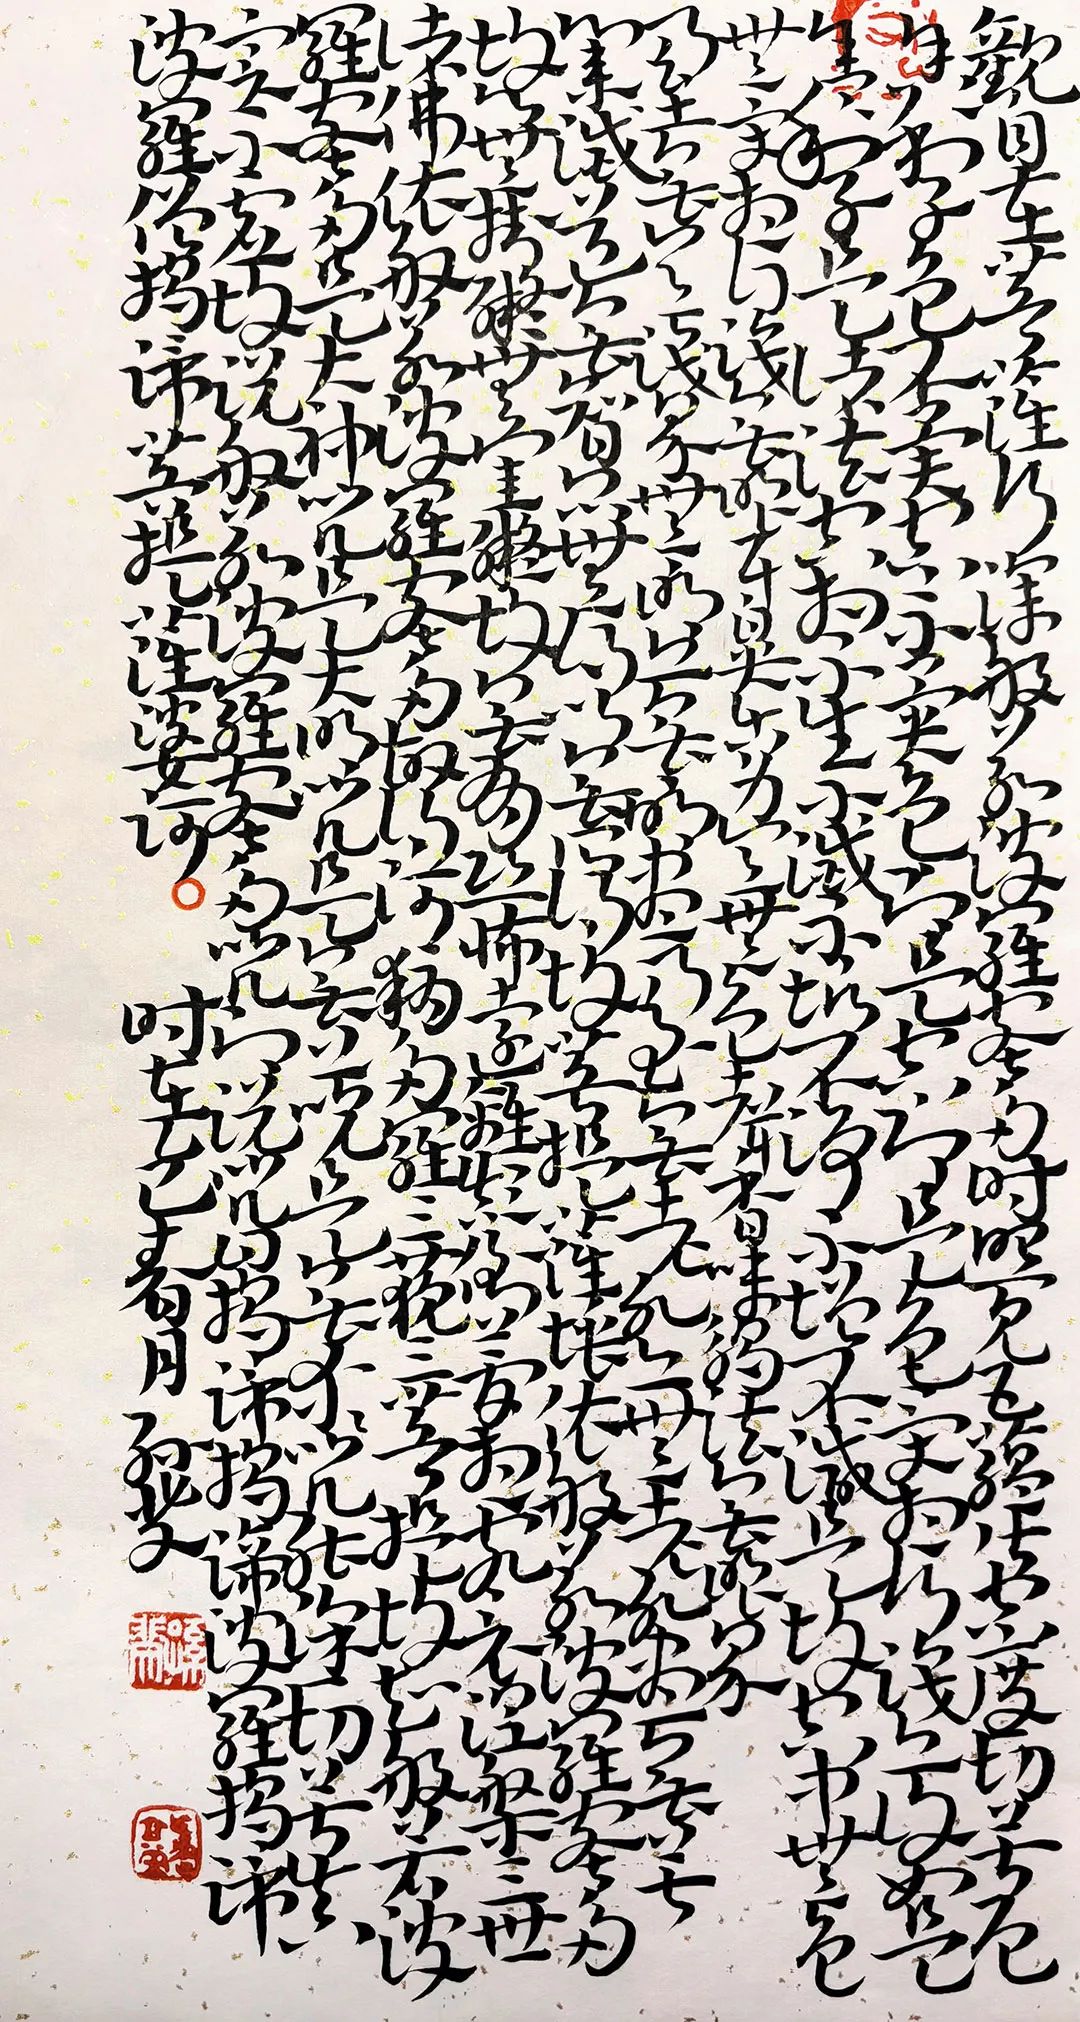 觀自在菩薩行深般若波羅蜜多时照見五蘊皆空度一切苦厄
舍利子色不異空空不異色色即是空空即是色受想行識亦復如是
舍利子是諸法空相不生不滅不垢不淨不增不減是故空中無色
無受想行識無眼耳鼻舌身意無色聲香味觸法無眼界
乃至無意識界無無明亦無無明盡乃至無老死亦無老死盡無苦
集滅道無智亦無得以無所得故菩提薩埵依般若波羅蜜多
故心無掛礙無罣礙故無有恐怖遠離顛倒夢想究竟涅槃三世
诸佛依般若波羅蜜多故得阿耨多羅三藐三菩提故知般若波
羅蜜多是大神咒是大明咒是無上咒是無等等咒能除一切苦真
實不虛故說般若波羅蜜多咒即說咒曰揭諦揭諦波羅揭諦
波羅僧揭諦菩提薩婆訶
时在乙巳春月